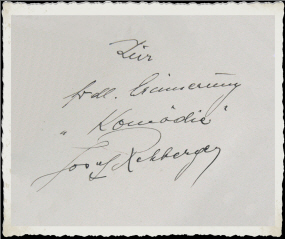 Zur
frdl. Erinnerung
"Komödie"
Josef Rehberger